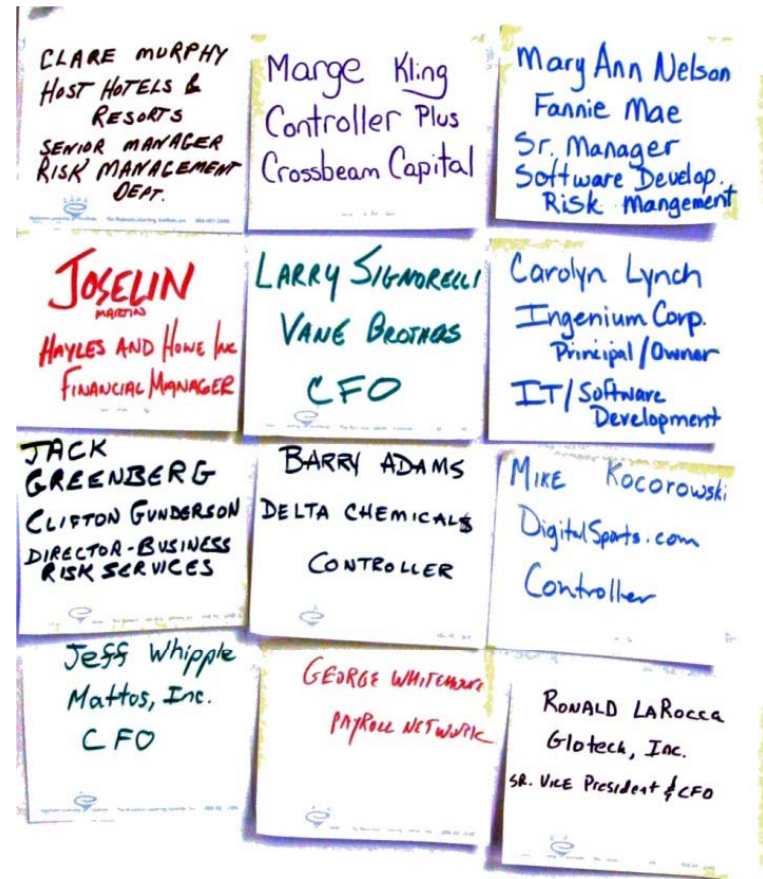 CLARE MURPHY
HOST HOTELS &
RESORTS
SENIOR MANAGER
RISK MANAGEMENT
DEPT.
Marge Kling
Controller Plus
Crossbeam Capital
Mary Ann Nelson
Fannie Mae
Sr. Manager
Software Develop.
Risk Mangement
JOSELIN
MARTIN
HAYLES AND HOWE INC
FINANCIAL MANAGER
LARRY SIGNORELLI
VANE BROTHERS
CFO
Carolyn Lynch
Ingenium Corp.
Principal/Owner
IT/Software
Development
JACK
GREENBERG
CLIFTON GUNDERSON
DIRECTOR-BUSINESS
RISK SERVICES
BARRY ADAMS
DELTA CHEMICALS
CONTROLLER
MIKE Kocorowski
DigitalSports.com
Controller
Jeff Whipple
Mattos, Inc.
CFO
GEORGE
PAYROLL NETWORK
RONALD LAROCCA
Glotech, Inc.
SR. VICE President & CFO